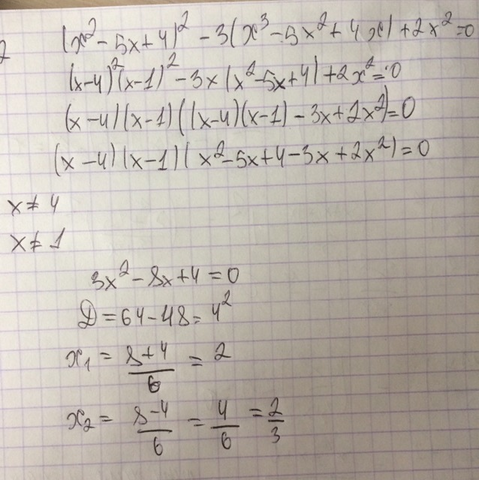 2
(x² - 5x + 4)² - 3(x³ - 5x² + 4x) + 2x² = 0
(x-4)²(x-1)² - 3x(x² - 5x + 4) + 2x² = 0
(x-4)(x-1)((x-4)(x-1) - 3x + 2x²) = 0
(x-4)(x-1)(x² - 5x + 4 - 3x + 2x²) = 0
x ≠ 4
x ≠ 1
3x² - 8x + 4 = 0
D = 64 - 48 = 4²
x₁ = (8+4)/6 = 2
x₂ = (8-4)/6 = 4/6 = 2/3